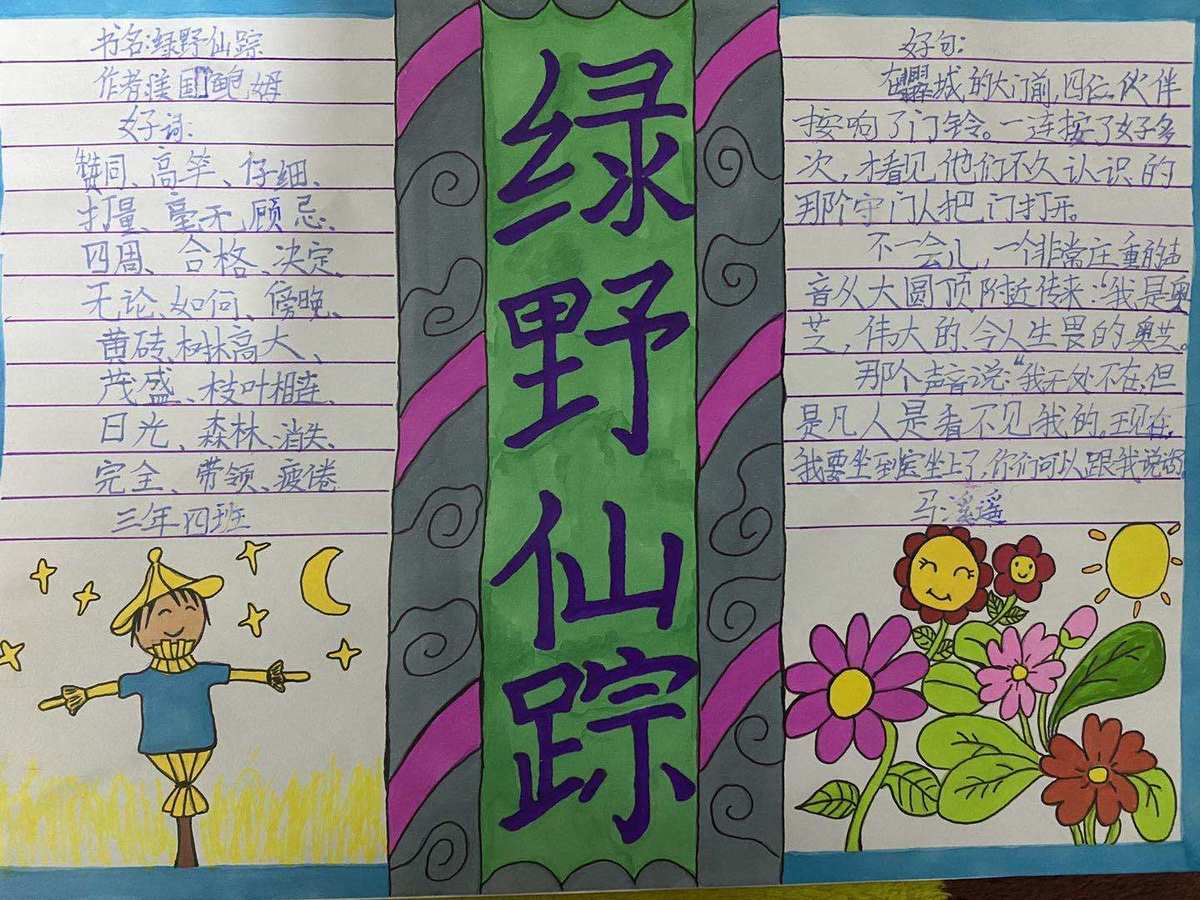 书名:绿野仙踪
作者:美国 鲍姆
好词:
赞同、高竿、仔细、
打量、毫无、顾忌、
四周、合格、决定、
无论、如何、傍晚、
黄砖、树林高大、
茂盛、枝叶相连、
日光、森林、消失、
完全、带领、疲倦
三年四班
绿野仙踪
好句:
在翡翠城的大门前,四位伙伴
按响了门铃。一连按了好多
次,才看见他们不久认识的
那个守门人把门打开。
不一会儿,一个非常庄重的声
音从大圆顶附近传来:“我是奥
芝,伟大的、令人生畏的奥芝。
那个声音说:“我无处不在,但
是凡人是看不见我的。现在,
我要坐到宝坐上了,你们可以跟我说话
马:溪遥